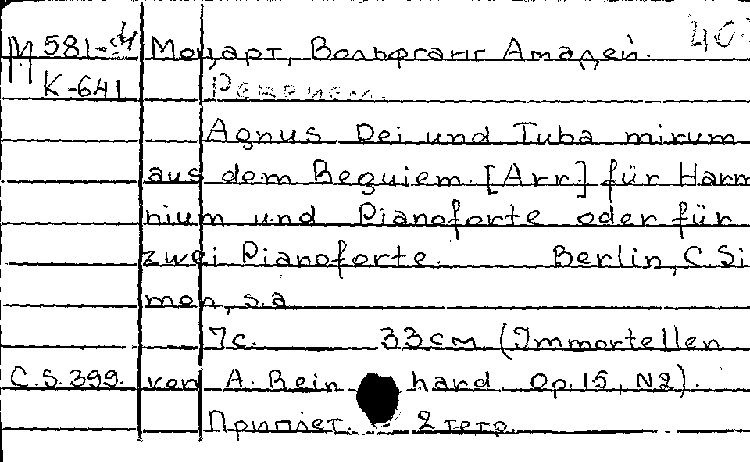 М 581-54 Моцарт, Вольфганг Амадей. 40
К-641 Реквием.
Agnus Dei und Tuba mirum
aus dem Requiem. [Arr] für Harm
nium und Pianoforte oder für
zwei Pianoforte. Berlin, C. Si
mon, s.a
7с. 33см (Immortellen
C.S.399. von A. Rein hard. Op. 15, N2).
Приплет. 2 тетр.